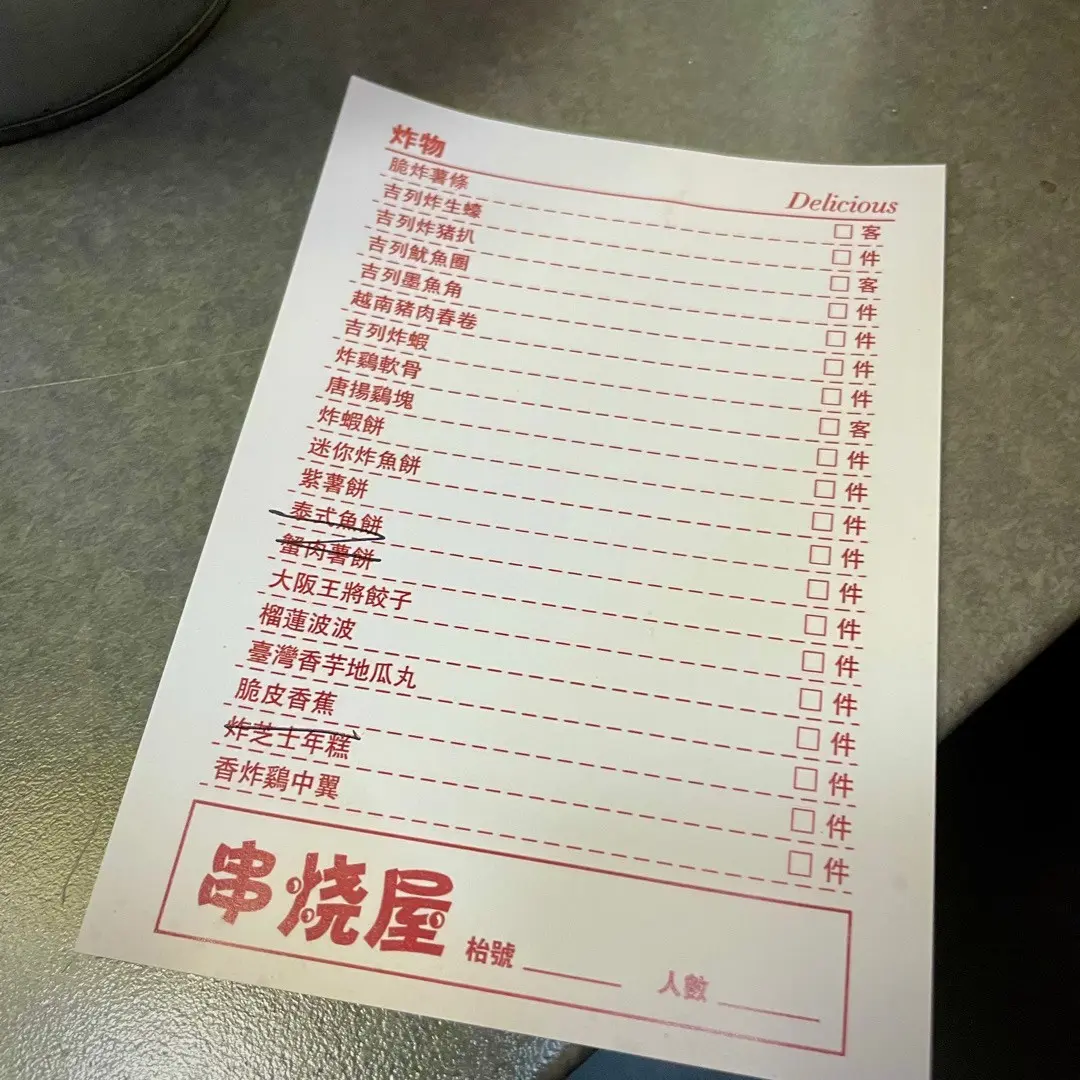 炸物 Delicious
脆炸薯條 □ 客
吉列炸生蠔 □ 件
吉列炸猪扒 □ 客
吉列魷魚圈 □ 件
吉列墨魚角 □ 件
越南豬肉春卷 □ 件
吉列炸蝦 □ 件
炸鷄軟骨 □ 客
唐揚鷄塊 □ 件
炸蝦餅 □ 件
迷你炸魚餅 □ 件
紫薯餅 □ 件
泰式魚餅 □ 件
蟹肉薯餅 □ 件
大阪王將餃子 □ 件
榴蓮波波 □ 件
臺灣香芋地瓜丸 □ 件
脆皮香蕉 □ 件
炸芝士年糕 □ 件
香炸鷄中翼 □ 件
串烧屋 枱號 人數